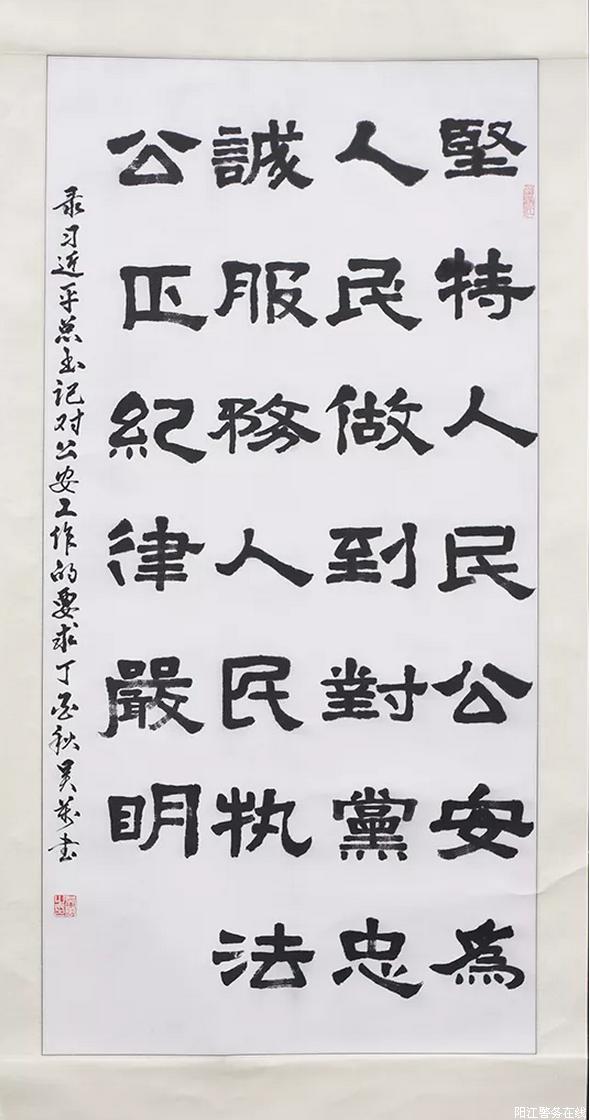 堅特人民公安為
人民做到對黨忠
誠服務人民执法
公正紀律嚴明
录习近平总书记对公安工作的要求丁酉秋吴书
阳江警务在线